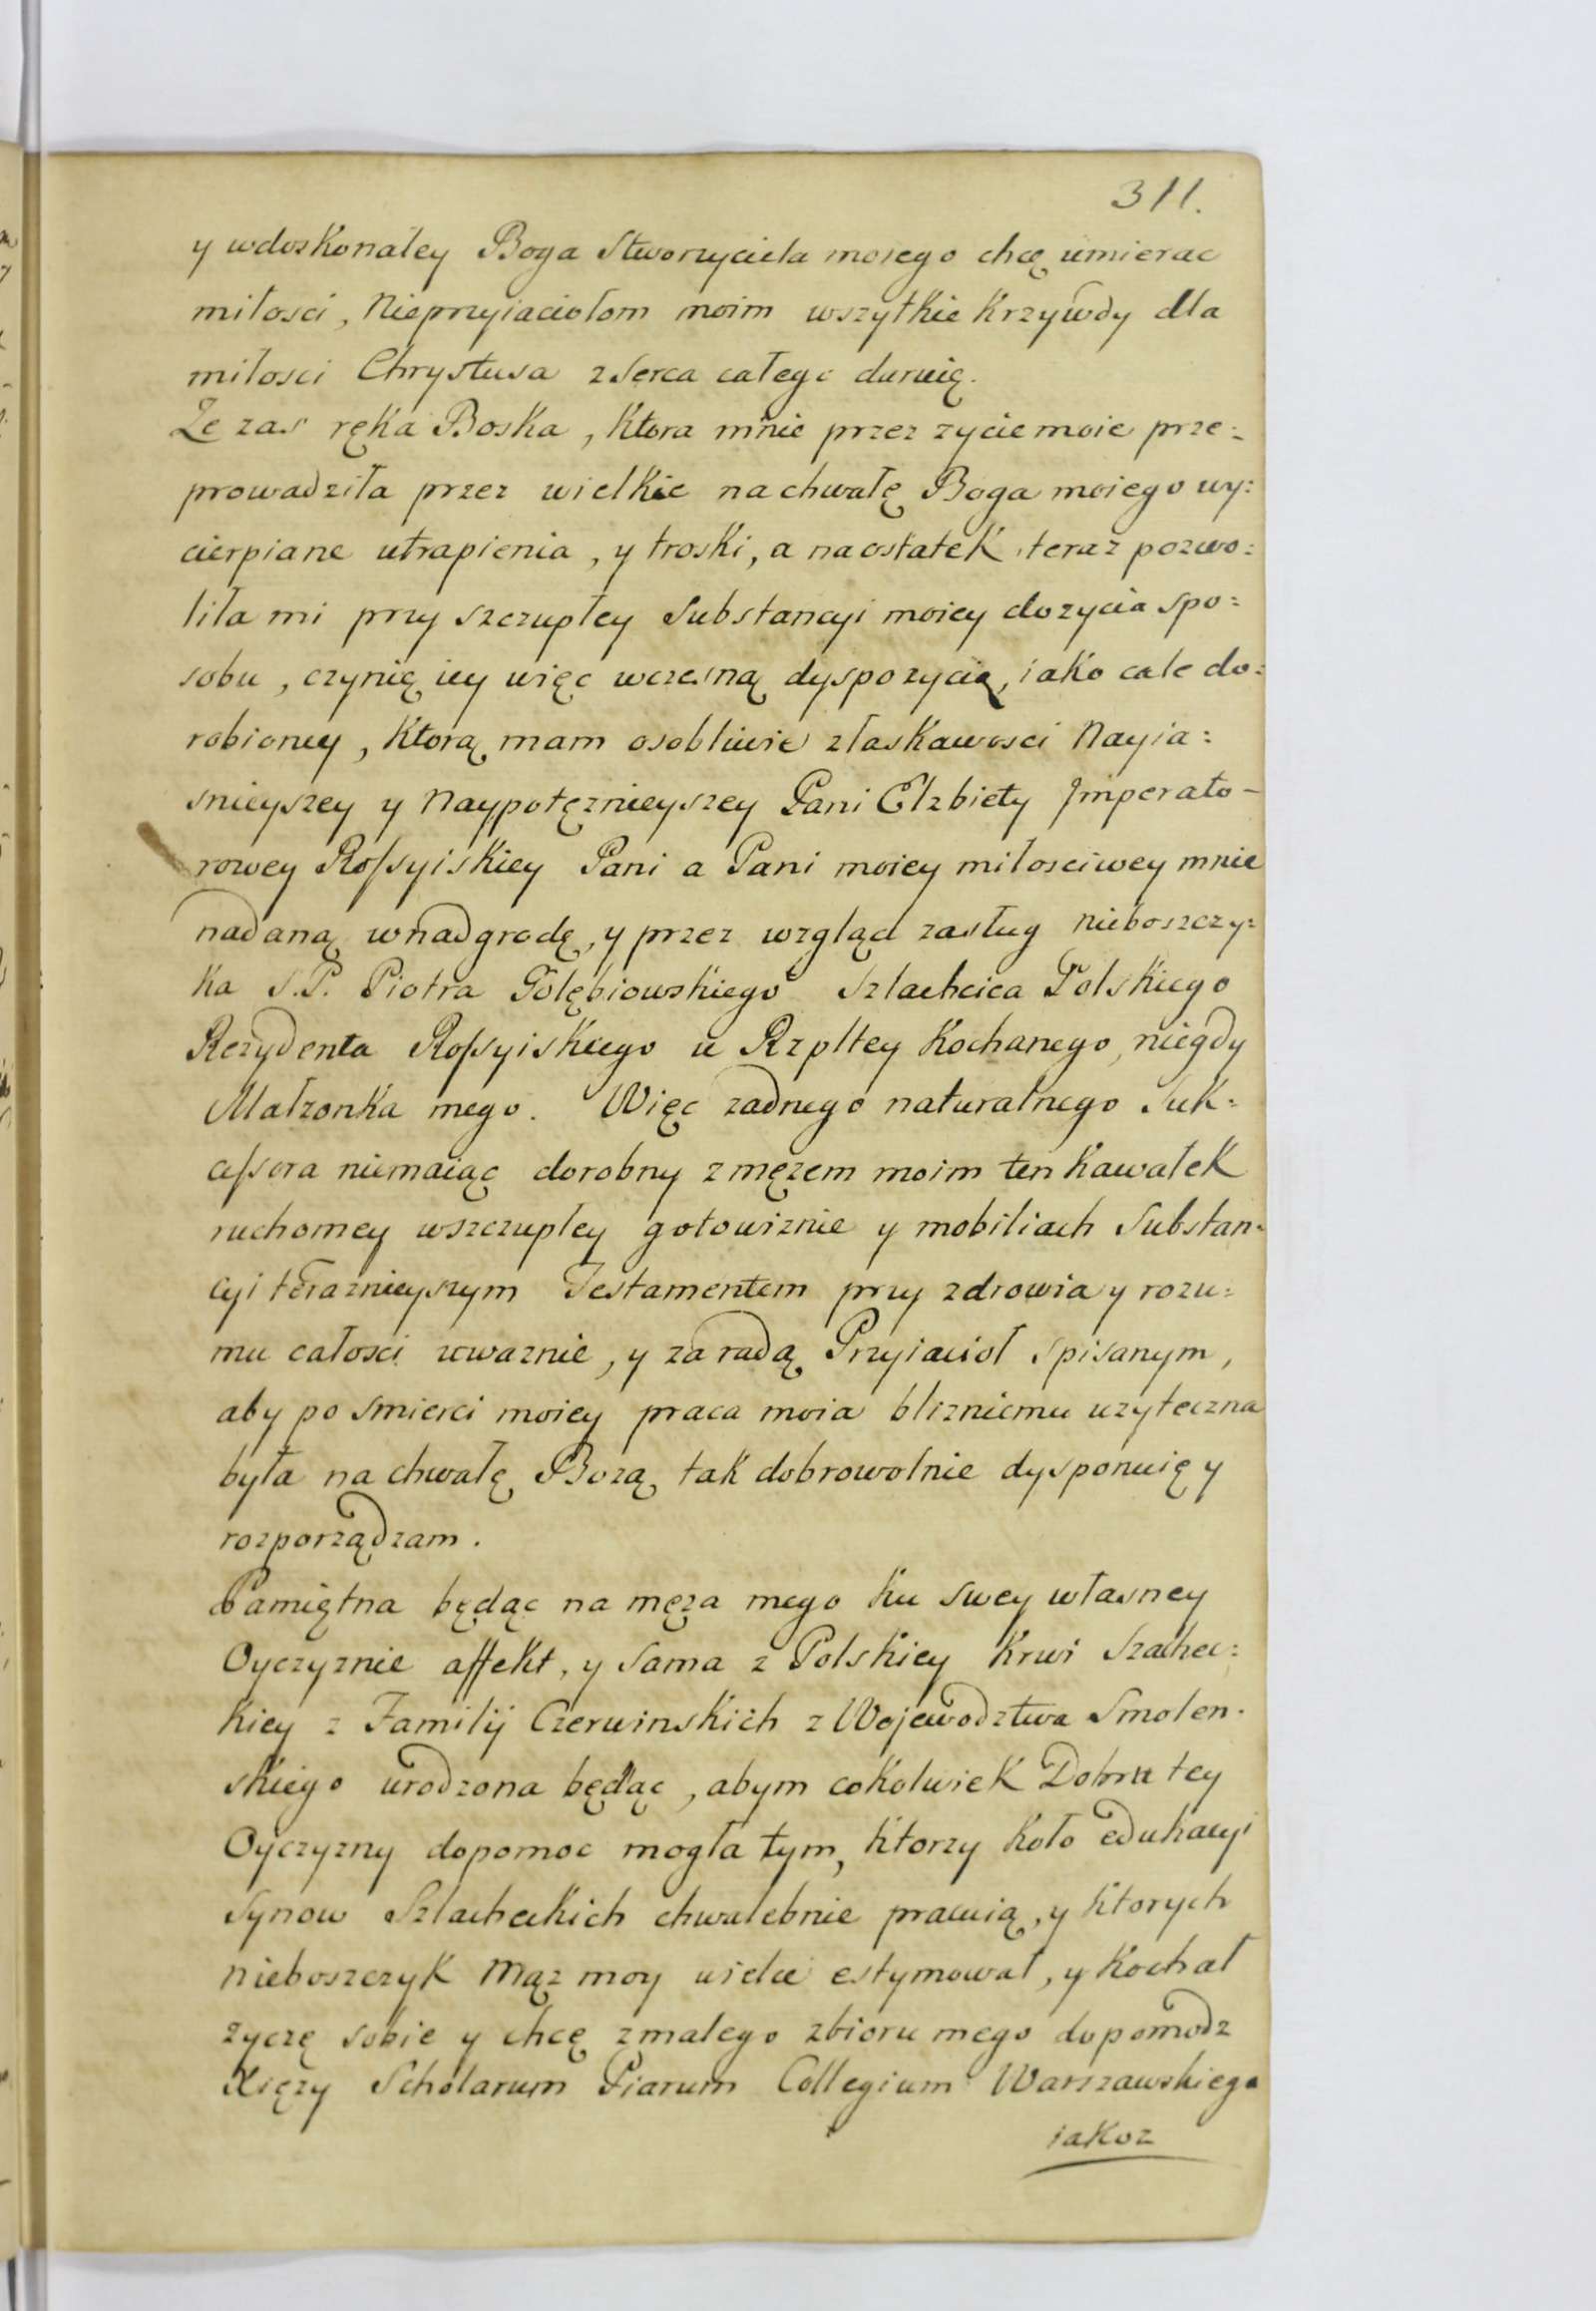 311.
y wdoskonałey Boga Stworzyciela moiego chcę umierac
miłosci, Nieprzyiaciołom moim wszytkie Krzywdy dla
miłosci Chrystusa z Serca całego daruię.
Ze zas ręka Boska, Ktora mnie przez zycie moie prze:
prowadziła przez wielkie na chwałę Boga moiego wy:
cierpiane utrapienia, y troski, a naostatek teraz pozwo:
liła mi przy szczupłey Substancyi moiey dozycia spo:
sobu, czynię iey więc wczesną dyspozycią, iako cale do:
robioney, Ktorą mam osobliwie złaskawosci Nayia:
snieyszey y Naypotęznieyszey Pani Elzbiety Imperato-
rowey Rossyiskiey Pani a Pani moiey miłosciwey mnie
nadaną wnadgrodę, y przez wzgląd zasług nieboszczy:
ka S.P. Piotra Gołębiowskiego Szlachcica Polskiego
Rezydenta Rossyiskiego u Rzpltey Kochanego, niegdy
Małzonka mego. Więc zadnego naturalnego Suk:
cessora niemaiąc dorobny z męzem moim ten Kawałek
ruchomey wszczupłey gotowiznie y mobiliach Substan:
cyi teraznieyszym Testamentem przy zdrowia y rozu:
mu całosci uwaznie, y za radą Przyiacioł spisanym,
aby po smierci moiey praca moia blizniemu uzyteczna
była na chwałę Bozą tak dobrowolnie dysponuię y
rozporządzam.
Pamiętna będąc na męza mego ku swey własney
Oyczyznie affekt, y Sama z Polskiey Krwi Szachec:
kiey z Familij Czerwinskich z Wojewodztwa Smolen:
skiego urodzona będąc, abym cokolwiek Dobru tey
Oyczyzny dopomoc mogła tym, Ktorzy Koło edukacyi
Synow Szlacheckich chwalebnie pracuią, y Ktorych
nieboszczyk Mąz moy wielce estymował, y Kochał
zyczę sobie y chcę zmałego zbioru mego dopomodz
Xięzy Scholarum Piarum Collegium Warszawskiego
iakoz